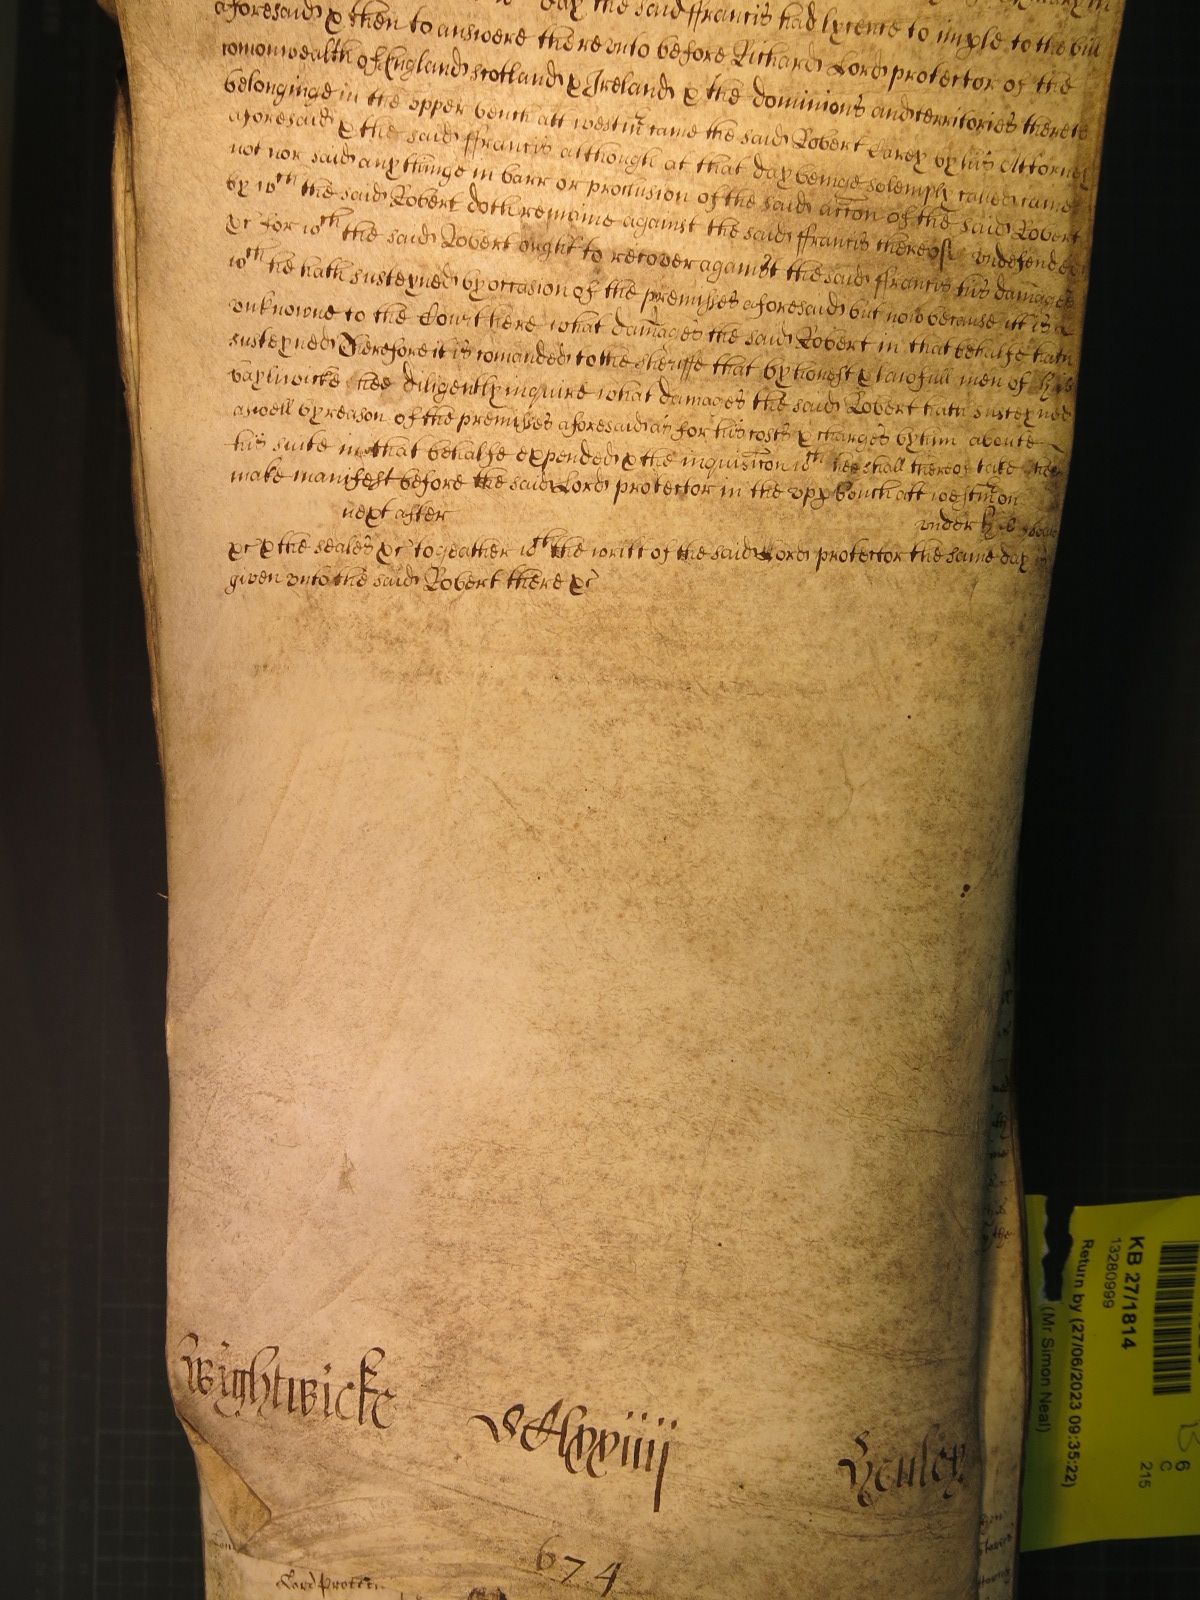 day the said ffrancis had lycence to imple to the bill
aforesaid & then to answere thereunto before Richard Lord protector of the
comonwealth of England Scotland & Ireland & the dominions and territories thereto
belonginge in the upper bench att westm̃ came the said Robert Carey by his Attorney
aforesaid & the said ffrancis although at that day beinge solemply called came
not nor said any thinge in barr or preclusion of the said acc̃on of the said Robert
by wᶜʰ the said Robert doth remaine against the said ffrancis thereof undefended
&c for wᶜʰ the said Robert ought to recover against the said ffrancis his damages
wᶜʰ he hath susteyned by occasion of the premisses aforesaid but now because itt is
unknowne to the Court here what damages the said Robert in that behalfe hath
susteyned Therefore it is comanded to the sheriffe that by honest & lawfull men of his
baylwicke hee diligently inquire what damages the said Robert hath susteyned
aswell by reason of the premisses aforesaid as for his costs & charges by him aboute
his suite in that behalfe expended & the inquisic̃on wᶜʰ hee shall thereof take hee
make manifest before the said Lord protector in the upp bench att westm̃ on
next after under
&c & the seales &c togeather wᵗʰ the writt of the said Lord protector the same day is
given unto the said Robert there &c
Wightwicke
vi Clxxiiij
Henley
674
Lord Protector
KB 27/1814
13280999
Return by (27/06/2023 09:35:22)
(Mr Simon Neal)
6
C
215